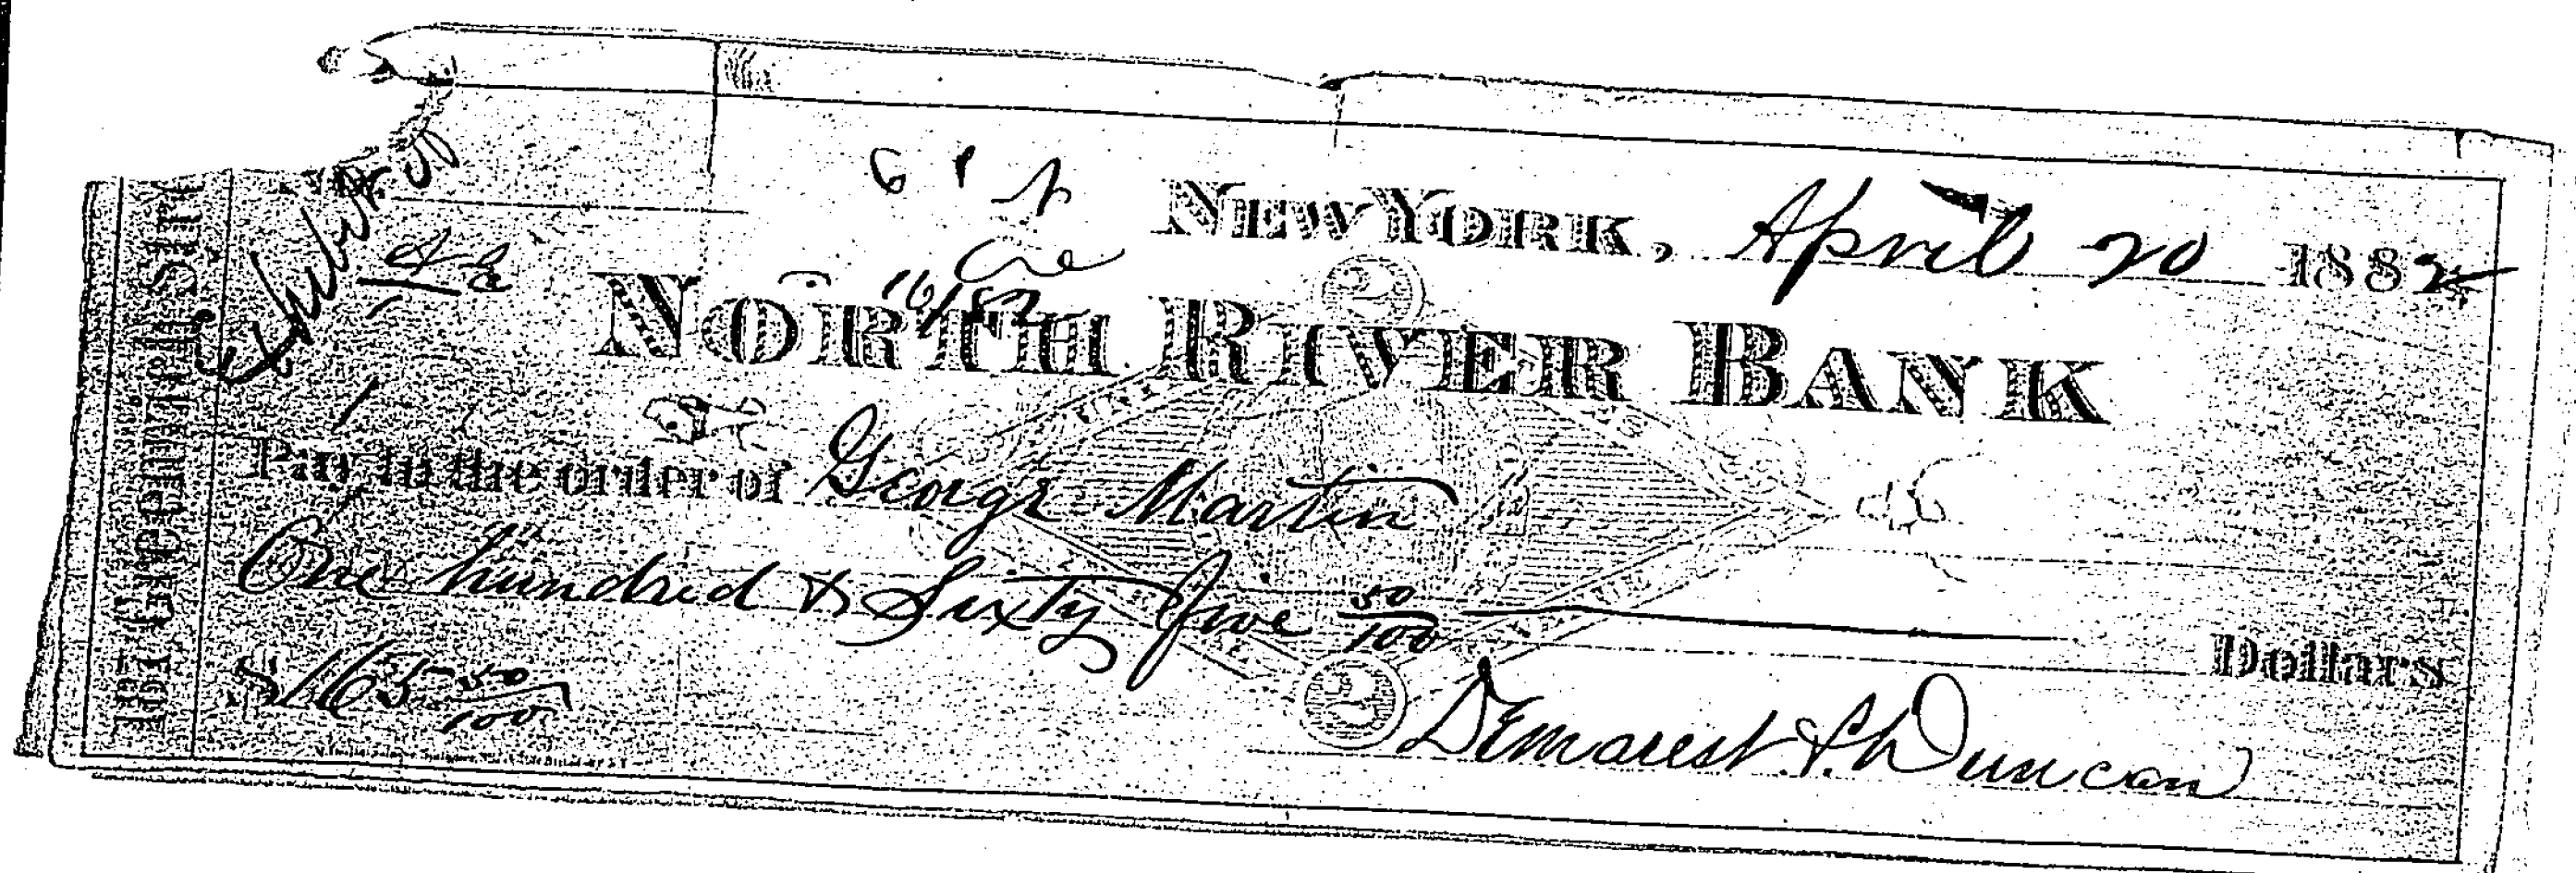 Exhibit
NEW YORK, April 20 1882
NORTH RIVER BANK
16/82
Pay to the order of George Martin
One hundred & Sixty five 50/100 Dollars
$165 50/100
Demarest & Duncan